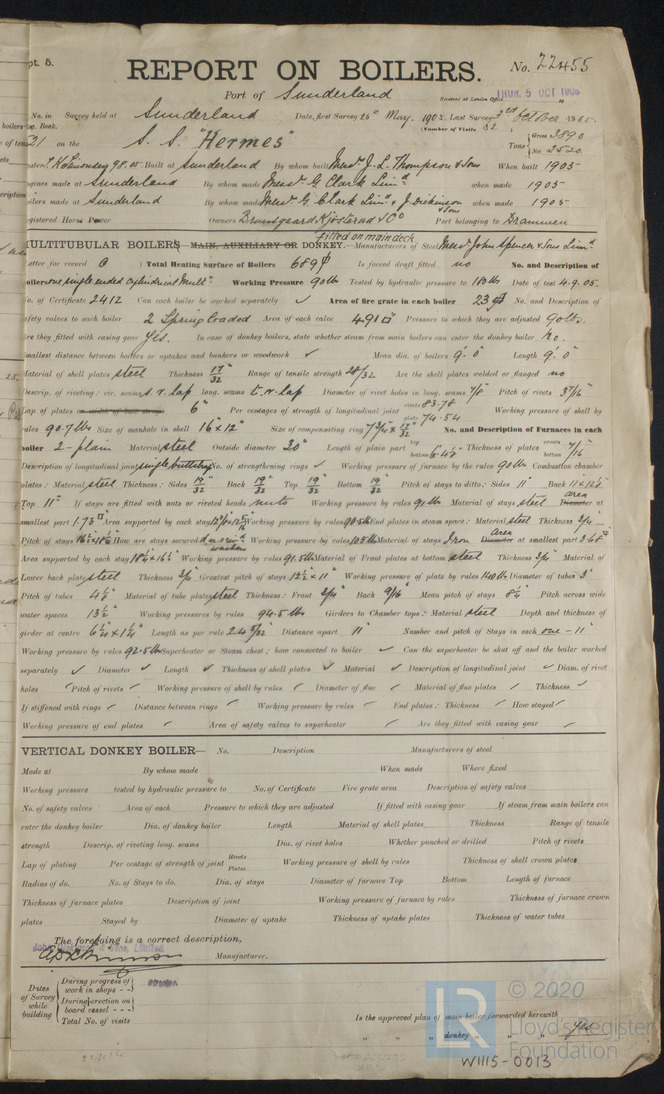 pt. 5.
REPORT ON BOILERS.
No. 22455
Port of Sunderland
Received at London Office THUR. 5 OCT 1905
No. in Survey held at Sunderland Date, first Survey 26th May, 1905. Last Survey 3rd October 1905.
Book. (Number of Visits 32)
on the S. S. "Hermes" Tons Gross 3890 Net 2520
Built at Sunderland By whom built Messrs J. L. Thompson & Sons When built 1905
Engines made at Sunderland By whom made Messrs G Clark Limd when made 1905
Boilers made at Sunderland By whom made Messrs G Clark Limd & J. Dickinson & Sons when made 1905
Registered Horse Power Owners Bruusgaard Kjosterud & Co Port belonging to Drammen
Fitted on main deck.
MULTITUBULAR BOILERS MAIN, AUXILIARY OR DONKEY.—Manufacturers of Steel Messrs John Spencer & Sons Limd.
Letter for record Total Heating Surface of Boilers 689 Is forced draft fitted no No. and Description of
Boilers one single ended cylindrical Mult: Working Pressure 90 lbs Tested by hydraulic pressure to 180 lbs Date of test 4.9.05.
No. of Certificate 2412 Can each boiler be worked separately ✓ Area of fire grate in each boiler 23 No. and Description of
safety valves to each boiler 2 Spring loaded Area of each valve 4.91 Pressure to which they are adjusted 90 lbs.
Are they fitted with easing gear Yes. In case of donkey boilers, state whether steam from main boilers can enter the donkey boiler No.
Smallest distance between boilers or uptakes and bunkers or woodwork ✓ Mean dia. of boilers 9'. 0" Length 9'. 0"
Material of shell plates steel Thickness 17/32 Range of tensile strength 28/32 Are the shell plates welded or flanged no
Descrip. of riveting: cir. seams s. r. lap long. seams t. r. lap Diameter of rivet holes in long. seams 7/8 Pitch of rivets
Lap of plates or width of butt straps 6" Per centages of strength of longitudinal joint rivets 83.78 plate 74.54 Working pressure of shell by
rules 90.7 lbs Size of manhole in shell 16" x 12" Size of compensating ring No. and Description of Furnaces in each
boiler 2 - plain Material steel Outside diameter 30" Length of plain part top bottom Thickness of plates crown bottom 7/16
Description of longitudinal joint single butt strap No. of strengthening rings ✓ Working pressure of furnace by the rules 90 lbs Combustion chamber
plates: Material steel Thickness: Sides 19/32 Back 19/32 Top 19/32 Bottom 19/32 Pitch of stays to ditto: Sides 11" Back
Top 11" If stays are fitted with nuts or riveted heads nuts Working pressure by rules 91 lbs Material of stays steel area Diameter at
smallest part 1.73 Area supported by each stay Working pressure by rules 90.5 lbs End plates in steam space: Material steel Thickness 3/4
Pitch of stays How are stays secured d. n. and washers Working pressure by rules Material of stays Iron Area Diameter at smallest part
Area supported by each stay Working pressure by rules 91.5 lbs Material of Front plates at bottom steel Thickness 3/4 Material of
Lower back plate steel Thickness 3/4 Greatest pitch of stays 12½ x 11" Working pressure of plate by rules 140 lbs Diameter of tubes 3"
Pitch of tubes Material of tube plates steel Thickness: Front 3/4 Back 9/16 Mean pitch of stays 8¼ Pitch across wide
water spaces 13½" Working pressures by rules 94.5 lbs Girders to Chamber tops: Material steel Depth and thickness of
girder at centre Length as per rule Distance apart 11" Number and pitch of Stays in each one - 11"
Working pressure by rules 92.5 lbs Superheater or Steam chest; how connected to boiler ✓ Can the superheater be shut off and the boiler worked
separately ✓ Diameter ✓ Length ✓ Thickness of shell plates ✓ Material ✓ Description of longitudinal joint ✓ Diam. of rivet
holes ✓ Pitch of rivets ✓ Working pressure of shell by rules ✓ Diameter of flue ✓ Material of flue plates ✓ Thickness ✓
If stiffened with rings ✓ Distance between rings ✓ Working pressure by rules ✓ End plates: Thickness ✓ How stayed ✓
Working pressure of end plates ✓ Area of safety valves to superheater ✓ Are they fitted with easing gear ✓
VERTICAL DONKEY BOILER— No. Description Manufacturers of steel
Made at By whom made When made Where fixed
Working pressure tested by hydraulic pressure to No. of Certificate Fire grate area Description of safety valves
No. of safety valves Area of each Pressure to which they are adjusted If fitted with easing gear If steam from main boilers can
enter the donkey boiler Dia. of donkey boiler Length Material of shell plates Thickness Range of tensile
strength Descrip. of riveting long. seams Dia. of rivet holes Whether punched or drilled Pitch of rivets
Lap of plating Per centage of strength of joint Rivets Plates Working pressure of shell by rules Thickness of shell crown plates
Radius of do. No. of Stays to do. Dia. of stays Diameter of furnace Top Bottom Length of furnace
Thickness of furnace plates Description of joint Working pressure of furnace by rules Thickness of furnace crown
plates Stayed by Diameter of uptake Thickness of uptake plates Thickness of water tubes
The foregoing is a correct description,
Manufacturer.
Dates of Survey while building
During progress of work in shops - -
During erection on board vessel - - -
Total No. of visits
Is the approved plan of main boiler forwarded herewith
" " " donkey " " " yes
© 2020
Lloyd's Register
Foundation
LR
W1115-0013